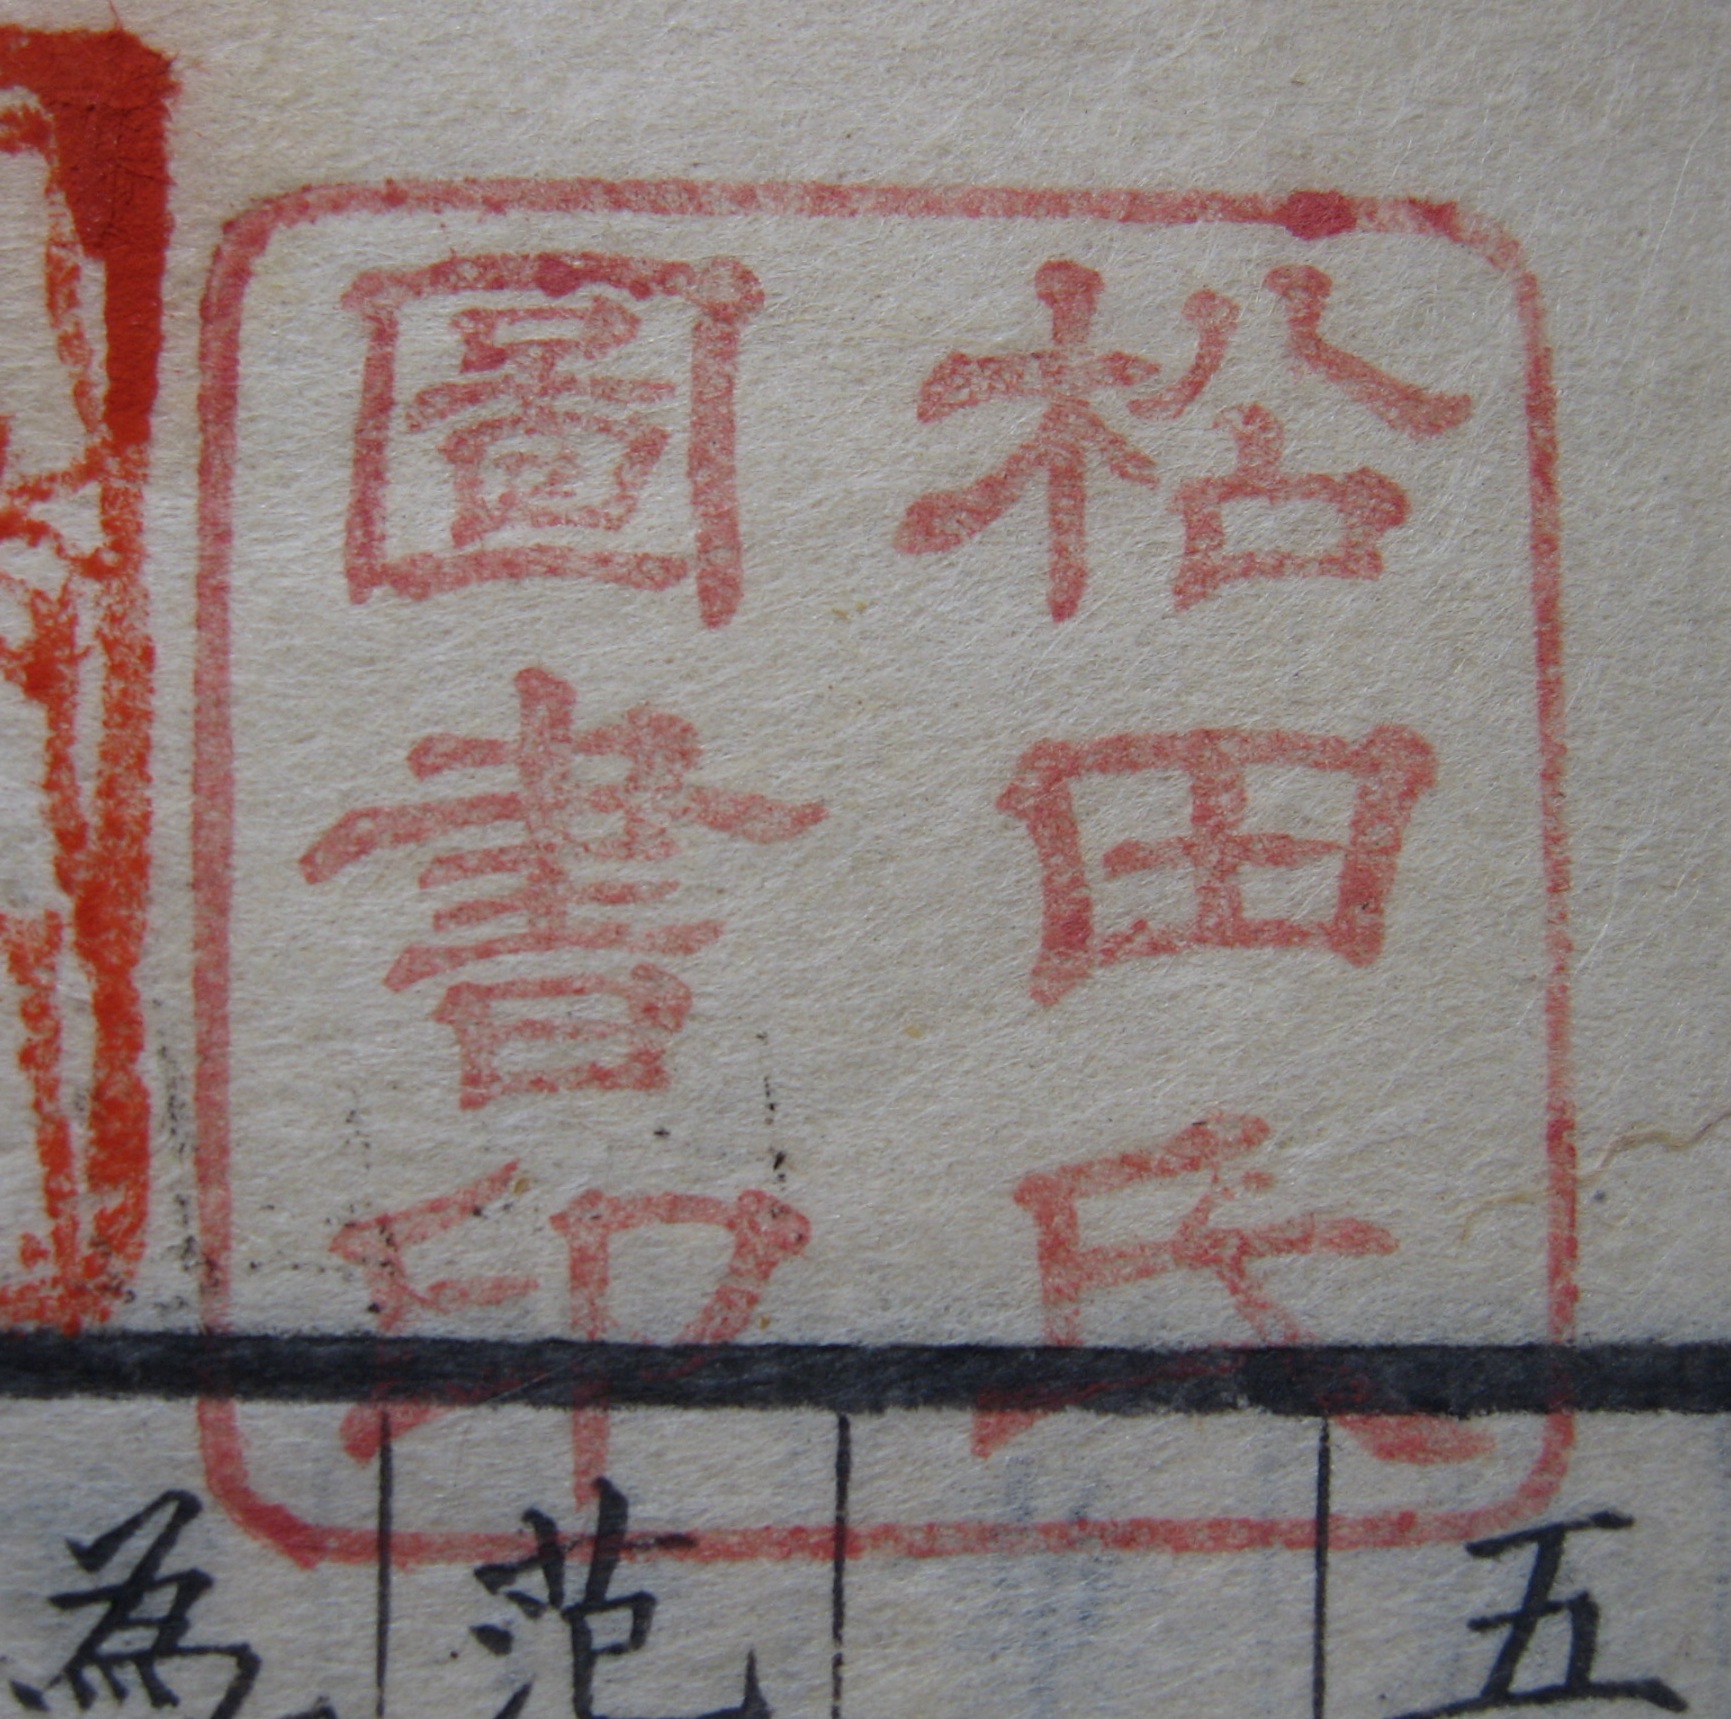 松田氏
圖書印
五
范
為